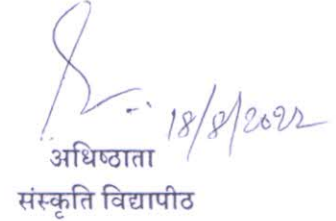 18/8/2022
अधिष्ठाता
संस्कृति विद्यापीठ